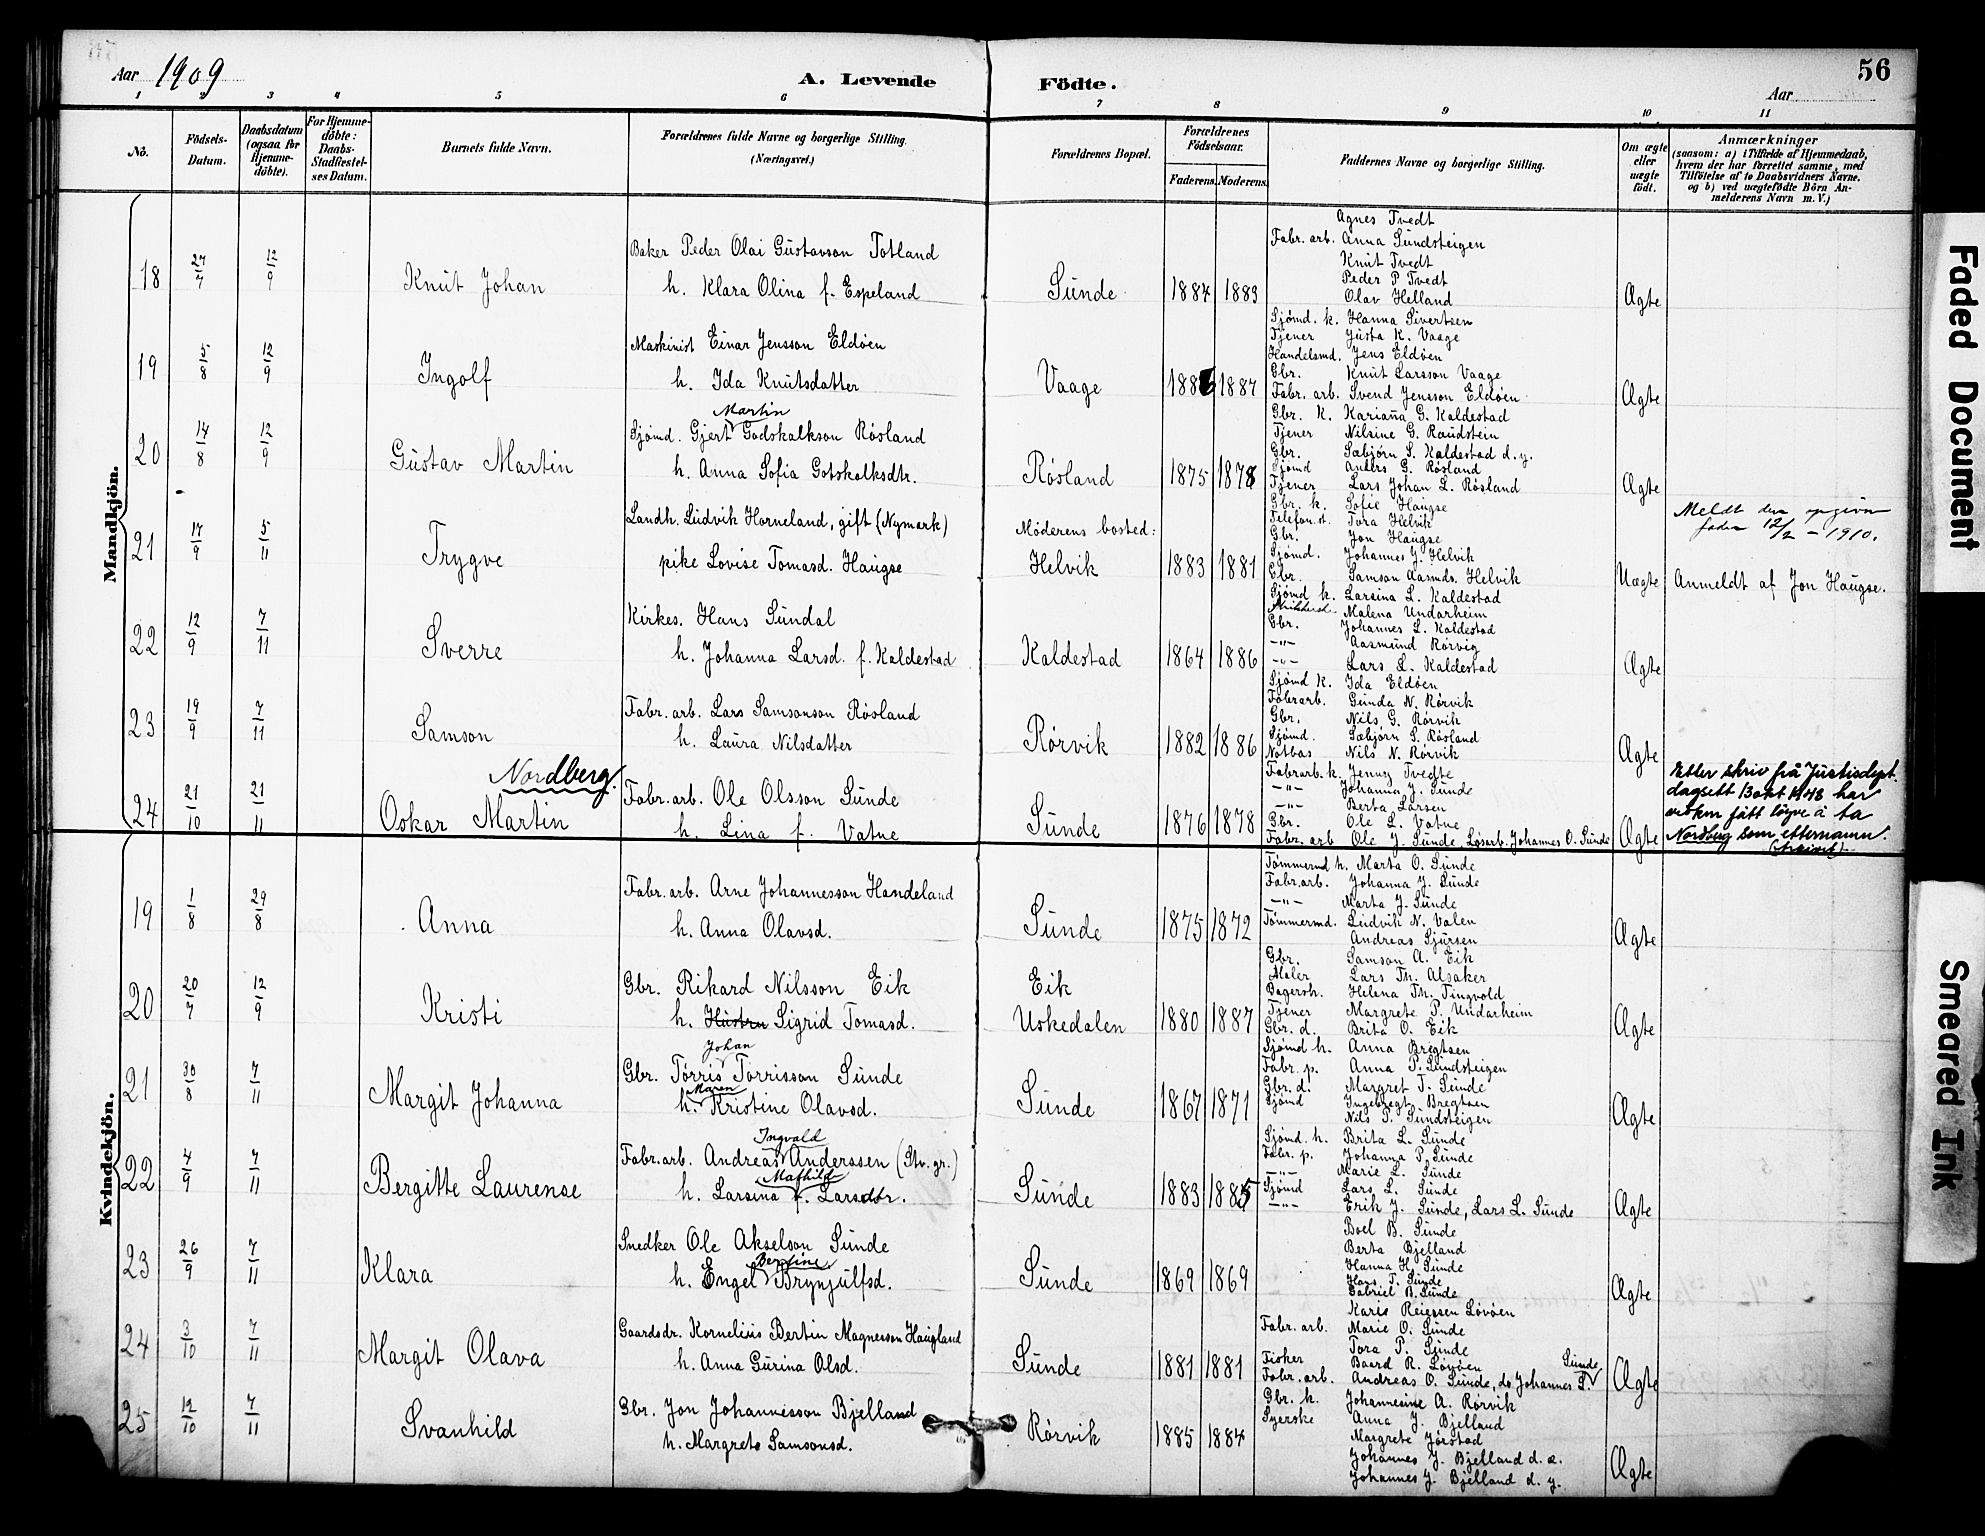 Aar 1909
A. Levende Födte.
56
Aar
1 2 3 4 5 6 7 8 9 10 11
No.
Födsels-Datum.
Daabsdatum (ogsaa for Hjemme-döbte).
For Hjemme-döbte: Daabs-Stadfæstel-ses Datum.
Barnets fulde Navn.
Forældrenes fulde Navne og borgerlige Stilling. (Næringsvei.)
Forældrenes Bopæl.
Forældrenes Födselsaar.
Faderens. Moderens.
Faddernes Navne og borgerlige Stilling.
Om ægte eller uægte födt.
Anmærkninger
(saasom: a) i Tilfælde af Hjemmedaab, hvem der har forrettet samme, med Tilföielse af to Daabsvidners Navne, og b) ved uægtefödte Börn Anmelderens Navn m. V.)
Mandkjön.
18 27/7 12/9 Knut Johan
Baker Peder Olai Gustavson Totland
h. Klara Olina f. Espeland
Sunde 1884 1883
Agnes Tvedt
Fabr. arb. Anna Sundsteigen
Knut Tvedt
Peder P Tvedt
Olav Helland
Ægte
19 5/8 12/9 Ingolf
Maskinist Einar Jensson Eldöen
h. Ida Knutsdatter
Vaage 1886 1887
Sjömd. k. Hanna Sivertsen
Tjener Justa K. Vaage
Handelsmd. Jens Eldöen
Gbr. Knut Larsson Vaage
Fabr. arb. Svend Jensson Eldöen
Ægte
20 14/8 12/9 Gustav Martin
Martin
Sjömd. Gjert Godskalkson Rösland
h. Anna Sofia Gotskalksdtr.
Rösland 1875 1878
Gbr. K. Kariana G. Kaldestad
Tjener Nilsine G. Raudstein
Gbr. Sæbjörn S. Kaldestad d.y.
Sjömd Anders G. Rösland
Tjener Lars Johan L. Rösland
Ægte
21 17/9 5/11 Trygve
Landh. Ludvik Horneland, gift (Nymark)
pike Lovise Tomasd. Haugse
Möderens bosted:
Helvik 1883 1881
Gbr. k. Sofie Haugse
Telefon.st. Tora Helvik
Gbr. Jon Haugse
Sjömd. Johannes J. Helvik
Gbr. Samson Aasmds. Helvik
Uægte
Meldt den opgivne
fader 12/2 - 1910.
Anmeldt af Jon Haugse.
22 12/9 7/11 Sverre
Kirkes. Hans Sundal
h. Johanna Larsd. f. Kaldestad
Kaldestad 1864 1886
Sjömd k. Larsina L. Kaldestad
Malena Undarheim
Gbr. Johannes L. Kaldestad
-"- Aasmund Rörvig
-"- Lars L. Kaldestad
Ægte
23 19/9 7/11 Samson
Fabr. arb. Lars Samsonson Rösland
h. Laura Nilsdatter
Rörvik 1882 1886
Sjömd K. Ida Eldöen
Fabrarb. Gunda N. Rörvik
Gbr. Nils G. Rörvik
Sjömd. Sæbjörn S. Rösland
Notbas Nils N. Rörvik
Ægte
Nordberg.
24 21/10 21/11 Oskar Martin
Fabr. arb. Ole Olsson Sunde
h. Lina f. Vatne
Sunde 1876 1878
Fabrarb. k. Jenny Tvedte
-"- Johanna J. Sunde
-"- Berta Larsen
Gbr. Ole L. Vatne
Fabr. arb Ole J. Sunde, Lösarb. Johannes O. Sunde
Ægte
Etter skriv frå Justisdept.
dagsett 13 okt 1948 har
vedkom fått löyve å ta
Nordberg som etternamn.
Kvindekjön.
19 1/8 29/8 Anna
Fabr. arb. Arne Johannesson Handeland
h. Anna Olavsd.
Sunde 1875 1872
Tömmermd h. Marta O. Sunde
Fabr.arb. Johanna J. Sunde
-"- Marta J. Sunde
Tömmermd. Ludvik N. Valen
Andreas Sjursen
Ægte
20 20/7 12/9 Kristi
Gbr. Rikard Nilsson Eik
h. Hustru Sigrid Tomasd.
Eik
Uskedalen 1880 1887
Gbr. Samson A. Eik
Maler Lars Th. Alsaker
Bagersh. Helena Th. Tingvold
Tjener Margrete P. Undarheim
Gbr. d. Brita O. Eik
Ægte
21 30/8 7/11 Margit Johanna
Johan
Gbr. Törris Torrisson Sunde
Maren
h. Kristine Olavsd.
Sunde 1867 1871
Sjömd h. Anna Bregtsen
Fabr. p. Anna P. Sundsteigen
Gbr. d. Margret T. Sunde
Sjömd Ingebregt Bregtsen
Nils P. Sundsteigen
Ægte
22 4/9 7/11 Bergitte Laurense
Ingvald
Fabr. arb. Andreas Anderssen (Stv. gr.)
Mathild
h. Larsina f. Larsdtr.
Sunde 1883 1885
Sjömd. h. Brita L. Sunde
Fabr. p. Johanna P. Sunde
-"- Marie L. Sunde
Sjömd Lars L. Sunde
-"- Erik J. Sunde, Lars L. Sunde
Ægte
23 26/9 7/11 Klara
Snedker Ole Akselson Sunde
Bertine
h. Engel Brynjulfsd.
Sunde 1869 1869
Boel B. Sunde
Berta Bjelland
Hanna H. Sunde
Hans T. Sunde
Gabriel B. Sunde
Ægte
24 3/10 7/11 Margit Olava
Gaardsdr. Kornelius Bertin Magnesson Haugland
h. Anna Gurina Olsd.
Sunde 1881 1881
Karis Reiersen Lövöen
Fabr. arb. Marie O. Sunde
Tora P. Sunde
Fisker Baard R. Lövöen
Sunde
Fabr. arb. Andreas O. Sunde, do Johannes S.
Ægte
25 12/10 7/11 Svanhild
Gbr. Jon Johannesson Bjelland
h. Margrete Samsonsd.
Rörvik 1885 1884
Gbr. k. Johannesine A. Rörvik
Syerske Anna J. Bjelland
Margrete Jörstad
Johannes J. Bjelland d. æ.
Johannes J. Bjelland d. y.
Ægte
Faded Document
Smeared Ink